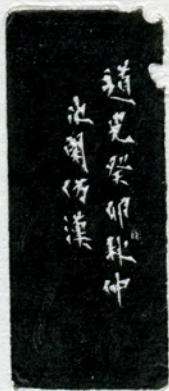 道光癸卯秋仲
次閑仿漢